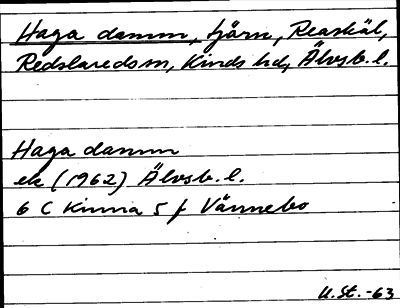 Haga damm, tjärn, Reaskäl,
Redslareds sn, Kinds hd, Älvsb. l.
Haga damm
ek (1962) Älvsb. l.
6 C Kinna 5 f Vännebo
U.St. -63